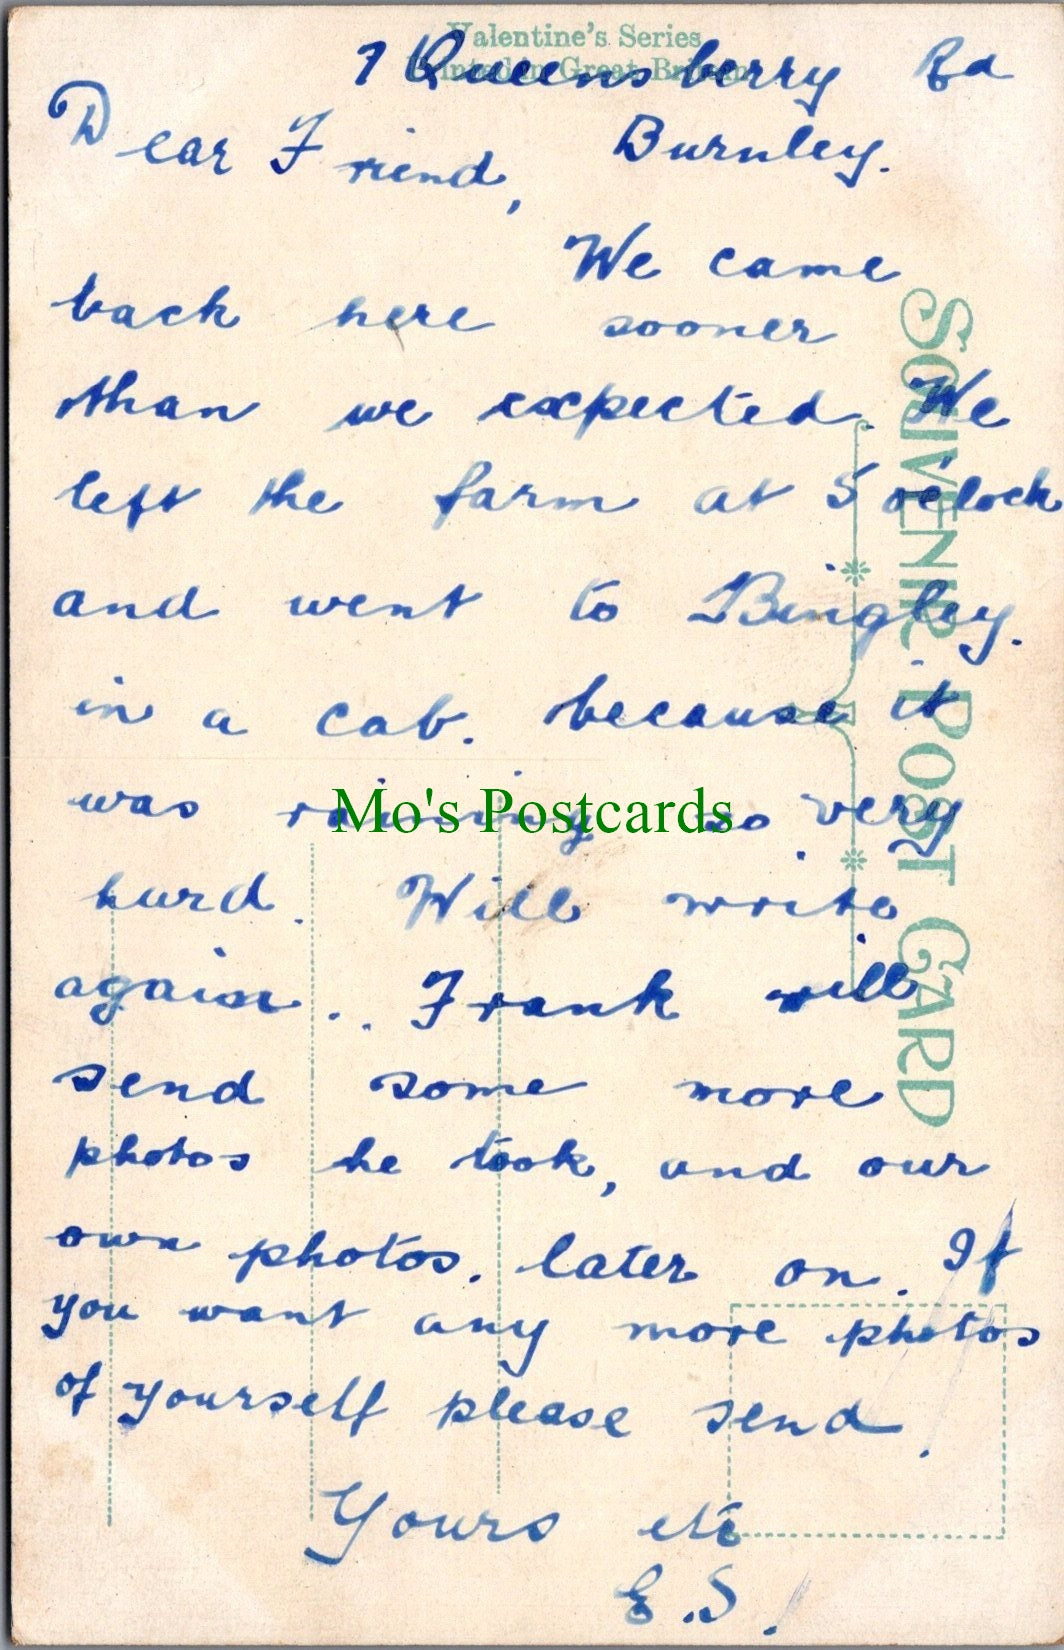 Valentine's Series
Printed in Great Britain
7 Queensberry Rd
Burnley.
Dear Friend,
We came
back here sooner
than we expected. We
left the farm at 5 oclock
and went to Bingley.
in a cab. because it
was raining so very
hard. Will write
again.. Frank will
send some more
photos he took, and our
own photos. later on. If
you want any more photos
of yourself please send.
Yours etc
E.S.
SOUVENIR POST CARD
Mo's Postcards